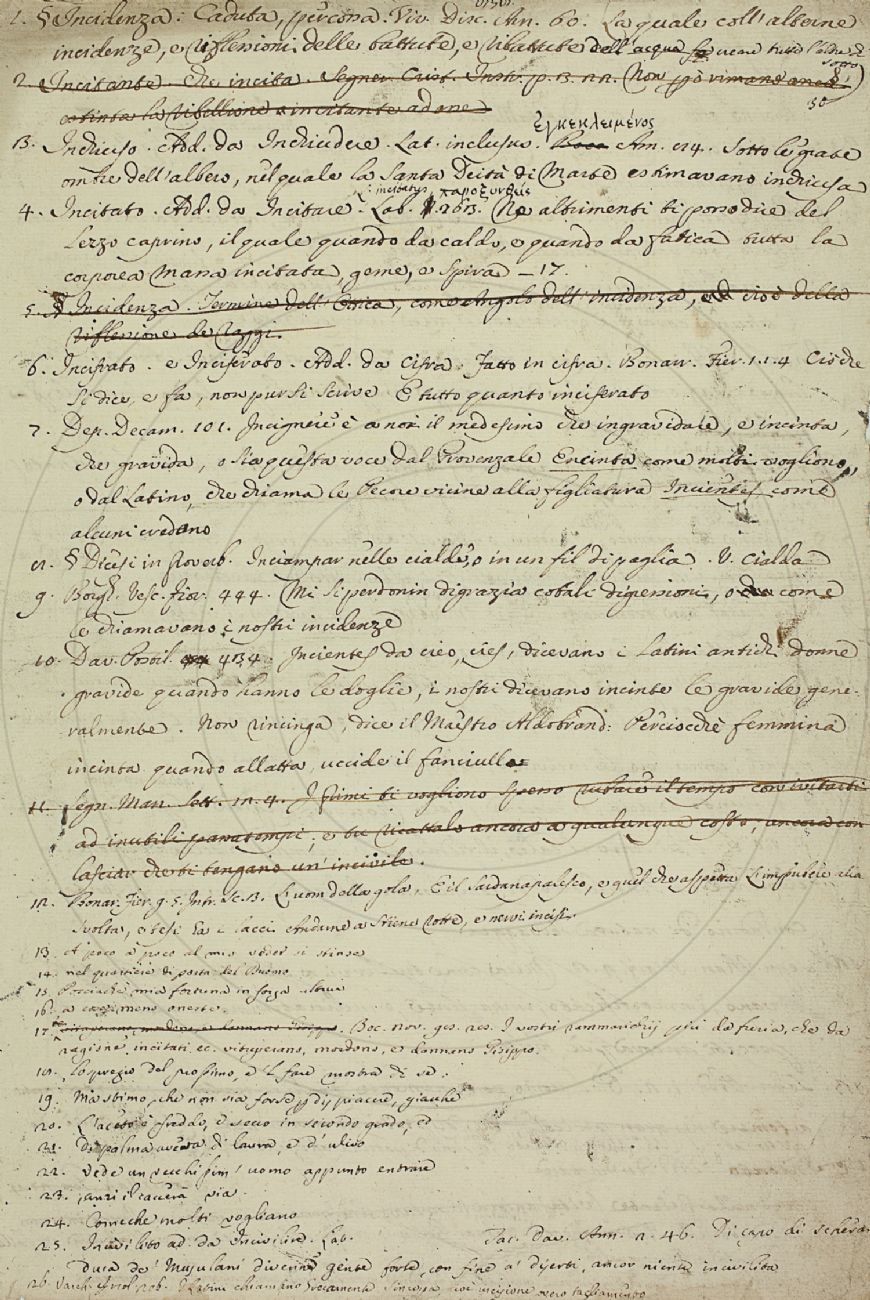 1. § Incidenza: Caduta, percossa. Viv. Disc. An. 60. La quale coll'alterne
incidenze, e riflessioni delle battute, e ributtute dell'acqua fa
2. Incitante. Che incita. Segner. Crist. Instr. p. 13. Non
estinta la ribellione incitante ad
ἐγκεκλειμένος
3. Inchiuso. Add. da Inchiudere. Lat. inclusus. Am. 24. Sotto le grate
ombre dell'albero, nel quale la Santa Deità di Marte estimavano inchiusa
: incitatus, παροξυνθείς
4. Incitato. Add. da Incitare. Lab. 263. Nè altrimenti ti posso dire del
lezzo caprino, il quale quando da caldo, e quando da fatica tutta la
corporea massa incitata, geme, e spira – 17.
5. § Incidenza. Termine dell'Ottica, come Angolo dell'incidenza, cioè della
riflessione de raggi.
6. Incifrato. e Inciferato. Add. da Cifra. Fatto in cifra. Bonarr. Fier. 1. 1. 4 Ciò che
si dice, e fa, non pur si scrive E tutto quanto inciferato
7. Dep. Decam. 101. Incignere è a noi il medesimo che ingravidare, e incinta,
che gravida, o sia questa voce dal Provenzale Encinta come molti vogliono,
o dal Latino, che chiama le Pecore vicine alla figliatura Incientes come
alcuni credono
8. § Dicesi in proverb. Inciampar nelle cialde, o in un fil di paglia. V. Cialda
9. Borgh. Vesc. Fior. 444. Mi si perdonin di grazia cotali digressioni, o come
le chiamavano i nostri incidenze
10. Dav. Postil. 434. Incientes da cieo, cies, dicevano i Latini antichi donne
gravide quando hanno le doglie, i nostri dicevano incinte le gravide gene-
ralmente. Non rincinga, dice il Maestro Aldobrand: Perciocchè femmina
incinta quando allatta, uccide il fanciullo
11. Segn. Mann. Sett. 4. I primi ti vogliono spesso rubare il tempo con invitarti
ad inutili passatempi; e tu ricattalo ancora a qualunque costo, ancora con
lasciar che ti tengano un'incivile.
12. Bonar. Fier. g. 5. Intr. Sc. 3. L'uom della gola, E il Sardanapalesco, e quel che aspetta L'impiccare alla
svolta, e tesi ha i lacci. Andarne a stiene rotte, e nervi incisi.
13. A poco a poco al mio veder si stinse
14. nel quartiere di porta del Duomo
15. Posciachè mia fortuna in forza altrui
16. a casi meno onesti.
17. Boc. nov. I vostri rammarichij più da furia, che da
ragione incitati ec. vituperano, mordono, e dannano Gisippo.
18. Lo spregio del prossimo, e 'l fare mostra di sè.
19. Ma stimo, che non sia forse p dij piacere, giacchè
20. L'aceto è freddo, e secco in secondo grado, ed
21. Di palma avea di laura, e d'ulivo
22. Vede un vecchissim' uomo appunto entrare
23. anzi il caccerà via.
24. Comechè molti vogliano
25. Incivilito ad. da Incivilire. Lab. Tac. Dav. Ann. 2. 46. Di capo di
duca de' Musulani divenne gente forte, con fine a' diserti, ancor niente incivilita
26. Varch. Ercol. i Latini chiamano incisione